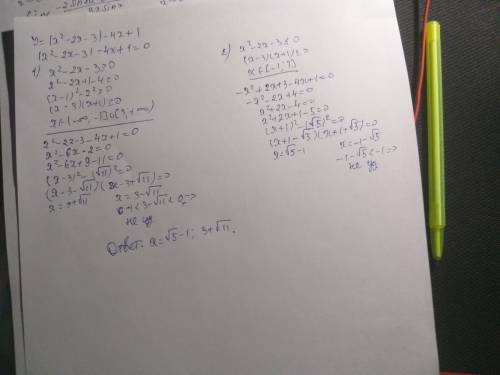 y = |x² - 2x - 3| - 4x + 1
|x² - 2x - 3| - 4x + 1 = 0
1) x² - 2x - 3 ≥ 0
x² - 2x + 1 - 4 ≥ 0
(x - 1)² - 2² ≥ 0
(x - 3)(x + 1) ≥ 0
x ∈ (-∞; -1] ∪ [3; +∞)
x² - 2x - 3 - 4x + 1 = 0
x² - 6x - 2 = 0
x² - 6x + 9 - 11 = 0
(x - 3)² - (√11)² = 0
(x - 3 - √11)(x - 3 + √11) = 0
x = 3 + √11 x = 3 - √11
0 + 1 < 3 - √11 < 0 =>
не уд
2) x² - 2x - 3 ≤ 0
(x - 3)(x + 1) ≤ 0
x ∈ [-1; 3]
-x² + 2x + 3 - 4x + 1 = 0
-x² - 2x + 4 = 0
x² + 2x - 4 = 0
x² + 2x + 1 - 5 = 0
(x + 1)² - (√5)² = 0
(x + 1 - √5)(x + 1 + √5) = 0
x = √5 - 1 x = -1 - √5
-1 - √5 < -1 =>
не уд
Ответ: x = √5 - 1; 3 + √11.